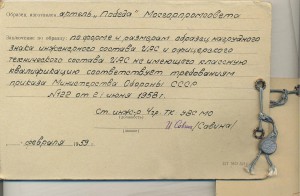 артель „Победа" Мосгорпромсовета
Заключение по образцу: по форме и размерам образец нагрудного
знака инженерного состава ИАС и офицерского
технического состава ИАС не имеющего классную
квалификацию соответствует требованиям
приказа Министерства Обороны СССР
№ 122 от 21 июня 1958 г.
Ст. инж-р 4 гр. ТК УВС МО
/Савина/
февраля 59 г.